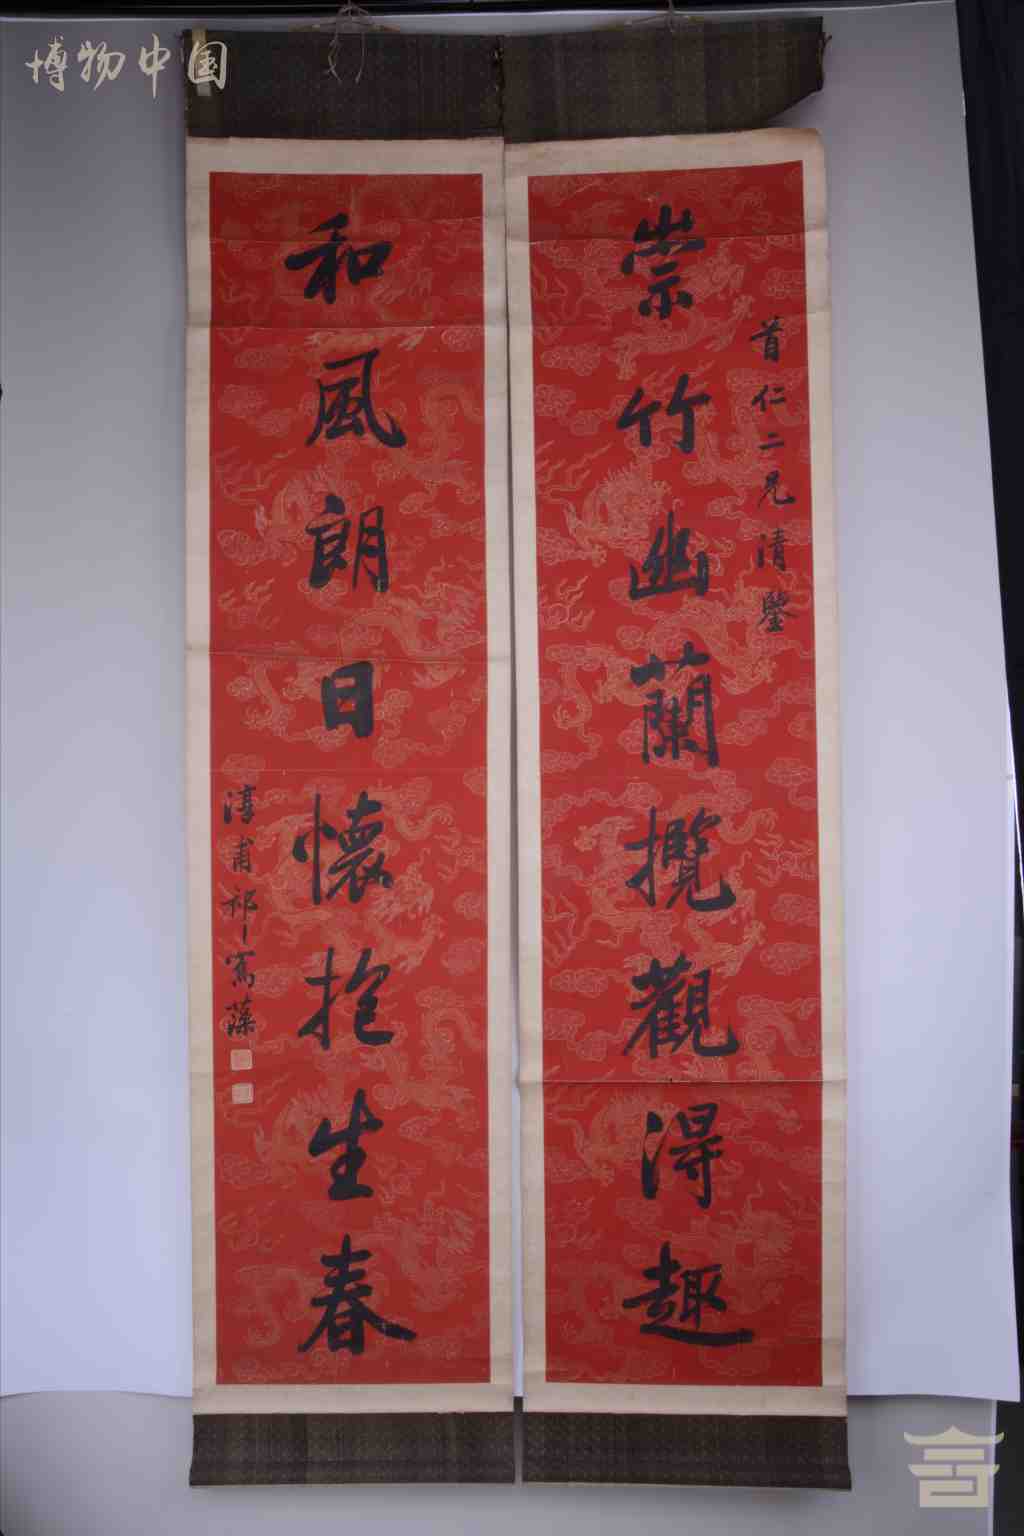 博物中国
首仁二兄清鑒
崇竹幽蘭攬觀得趣
和風朗日懷抱生春
淳甫祁寯藻